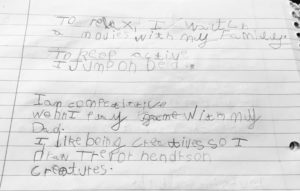 To relax, I watch
a movies with my family.
To keep activ
I jump on bed.
I am competitive
wehn I play game with my
Dad.
I like being creatives so I
draw Trevor hendrson
creatures.